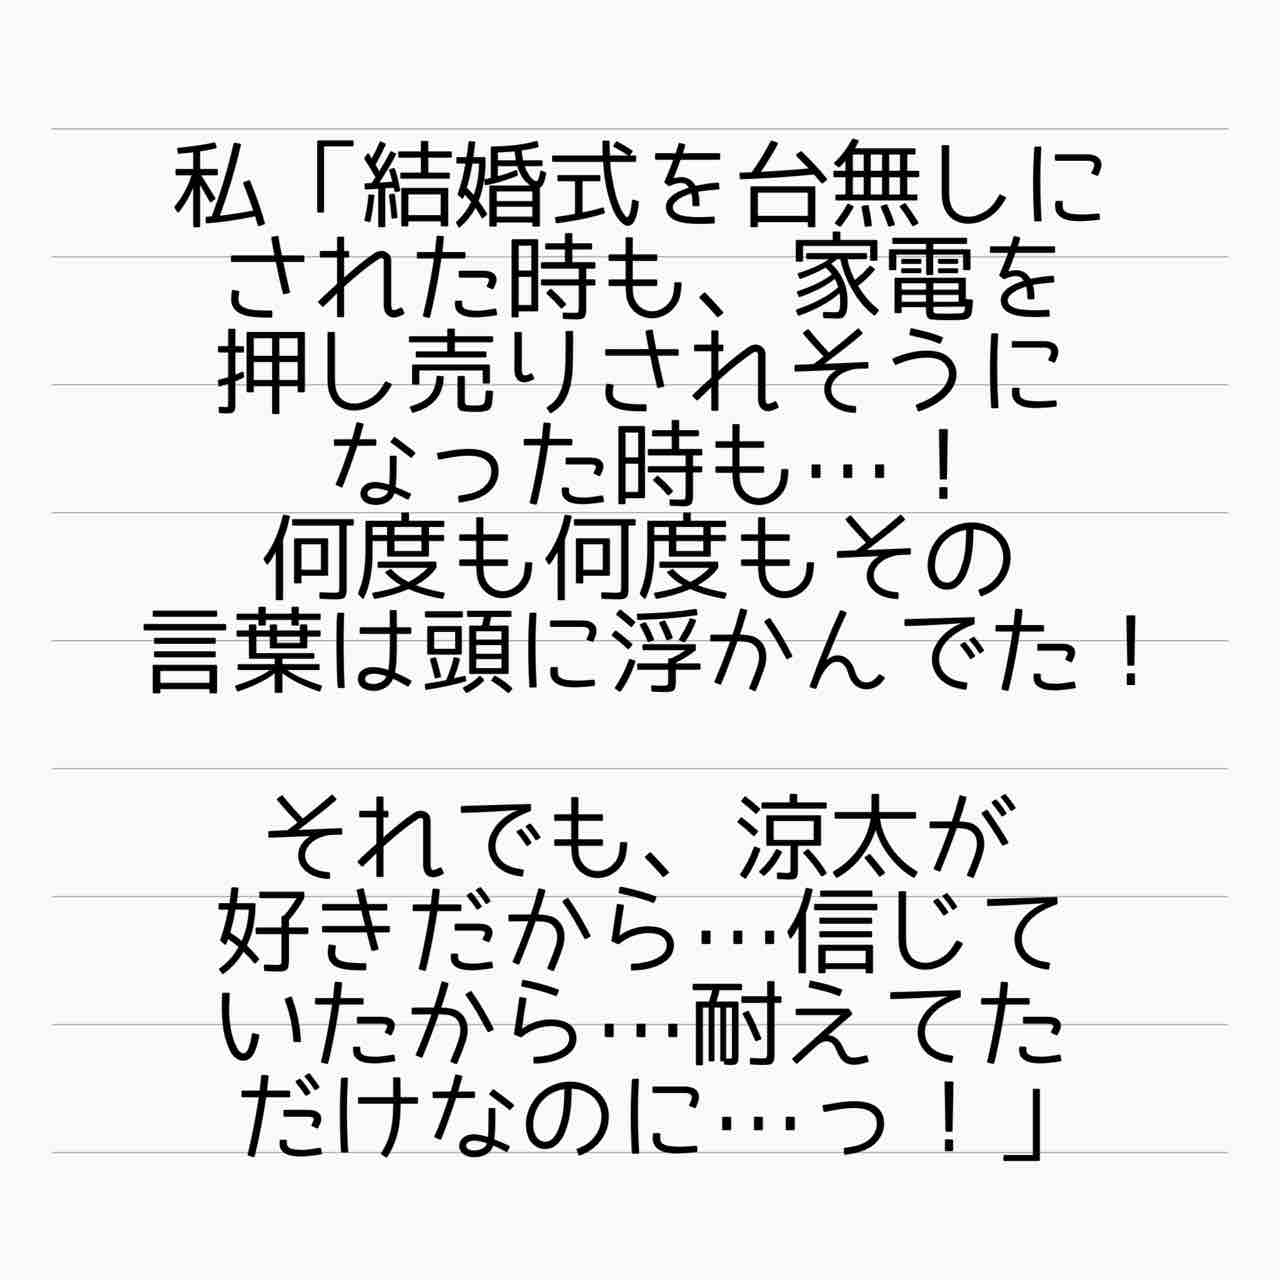 私「結婚式を台無しに
された時も、家電を
押し売りされそうに
なった時も…！
何度も何度もその
言葉は頭に浮かんでた！
それでも、涼太が
好きだから…信じて
いたから…耐えてた
だけなのに…っ！」